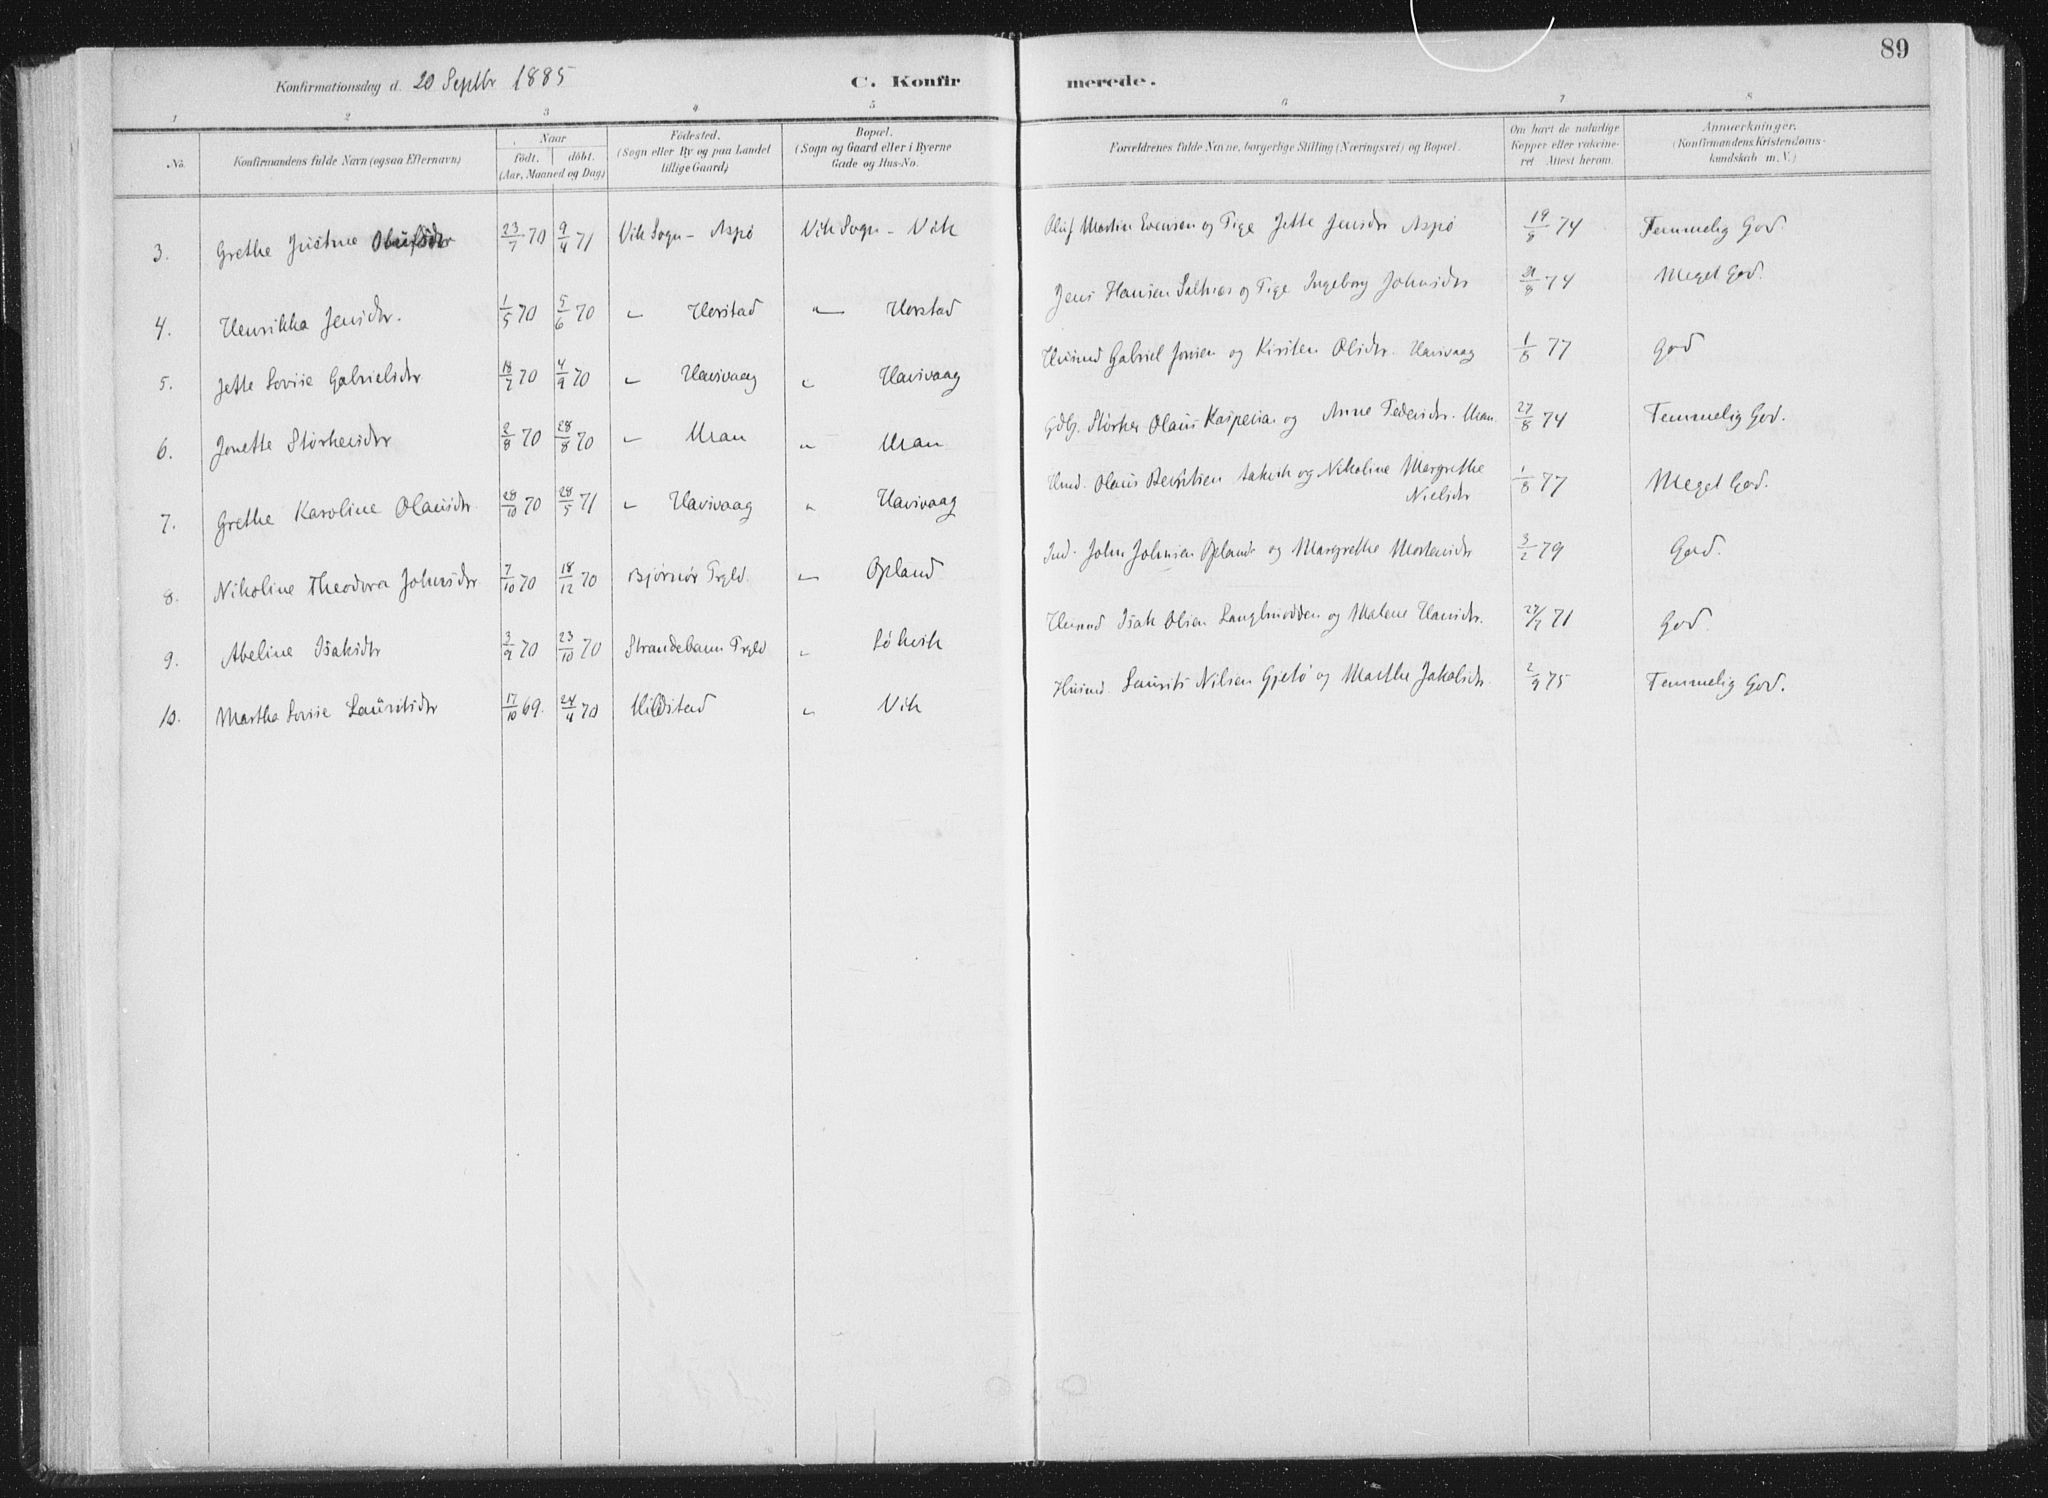 89
Konfirmationsdag d. 20 Septbr 1885 C. Konfirmerede.
1 2 3 4 5 6 7 8
No. Konfirmandens fulde Navn (ogsaa Efternavn) Naar födt. döbt. (Aar, Maaned og Dag) Födested. (Sogn eller By og paa Landet tillige Gaard) Bopæl. (Sogn og Gaard eller i Byerne Gade og Hus-No. Forældrenes fulde Navne, borgerlige Stilling (Næringsvei) og Bopæl. Om havt de naturlige Kopper eller vakcineret Attest herom. Anmærkninger. (Konfirmandens Kristendomskundskab m. V.)
3. Grethe Justine Olufsdtr 23/7 70 9/4 71 Vik Sogn - Aspö Vik Sogn - Vik Oluf Martin Evensen og Pige Jette Jensdtr Aspö 19/8 74 Temmelig God
4. Henrikka Jensdtr. 1/5 70 5/6 70 " Horstad " Horstad Jens Hansen Saltnæs og Pige Ingeborg Johnsdtr 21/8 74 Meget God.
5. Jette Lovise Gabrielsdtr 18/7 70 4/9 70 " Havsvaag " Havsvaag Husmd Gabriel Jonsen og Kirsten Olsdtr. Havsvaag 1/8 77 God
6. Jonette Størkersdtr 2/8 70 28/8 70 " Uran " Uran Gdbg. Størker Olaus Kaspersen og Anne Pedersdtr. Uran 27/8 74 Temmelig God.
7. Grethe Karoline Olausdtr. 28/10 70 28/5 71 " Havsvaag " Havsvaag Husmd. Olaus Berntsen og Nikoline Margrethe Nielsdtr 1/8 77 Meget God.
8. Nikoline Theodora Johnsdtr 7/10 70 18/12 70 Bjørnør Prgld. " Opland Ind. John Johnsen Opland og Margrethe Mortensdtr 3/2 79 God.
9. Abeline Isaksdtr 3/9 70 23/10 70 Strandebarm Prgld " Løkvik Husmd Isak Olsen og Malene Hansdtr. 27/7 71 God.
10. Martha Lovise Lauritsdtr 17/10 69. 24/4 70 Hildstad " Vik Husmd. Laurits Nilsen Gjetö og Marthe Jakobsdtr. 2/9 75 Temmelig God.